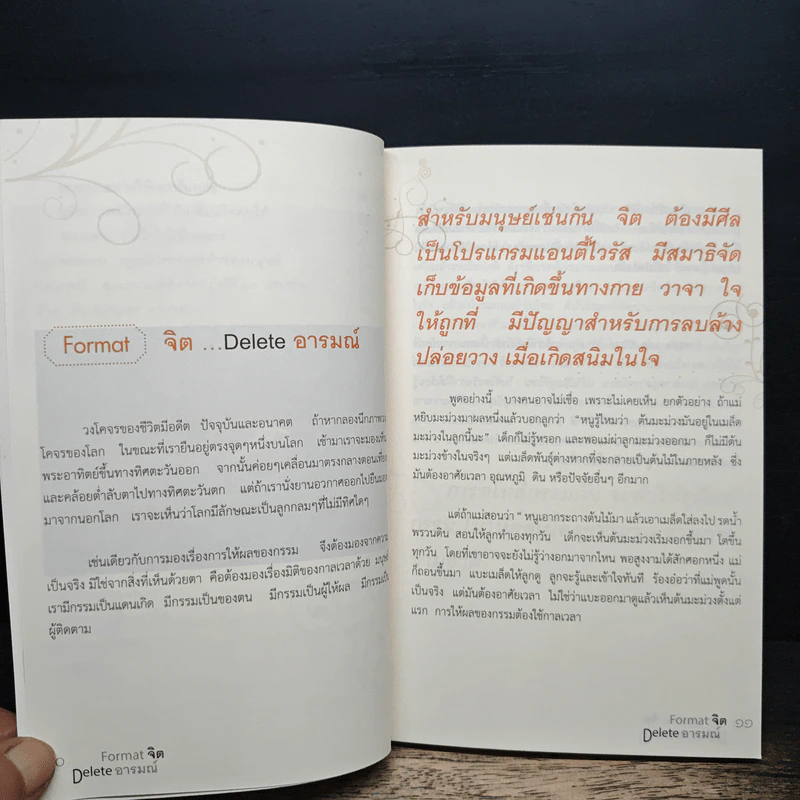 Format จิต ...Delete อารมณ์
วงโคจรของชีวิตมีอดีต ปัจจุบันและอนาคต ถ้าหากลองนึกภาพวง
โคจรของโลก ในขณะที่เรายืนอยู่ตรงจุดๆหนึ่งบนโลก เช้ามาเราจะมองเห็น
พระอาทิตย์ขึ้นทางทิศตะวันออก จากนั้นค่อยๆเคลื่อนมาตรงกลางตอนเที่ยง
และคล้อยต่ำลับตาไปทางทิศตะวันตก แต่ถ้าเรานั่งยานอวกาศออกไปยืนมอง
มาจากนอกโลก เราจะเห็นว่าโลกมีลักษณะเป็นลูกกลมๆที่ไม่มีทิศใดๆ
เช่นเดียวกับการมองเรื่องการให้ผลของกรรม จึงต้องมองจากความ
เป็นจริง มิใช่จากสิ่งที่เห็นด้วยตา คือต้องมองเรื่องมิติของกาลเวลาด้วย มนุษย์
เรามีกรรมเป็นแดนเกิด มีกรรมเป็นของตน มีกรรมเป็นผู้ให้ผล มีกรรมเป็น
ผู้ติดตาม
Format จิต
Delete อารมณ์
สำหรับมนุษย์เช่นกัน จิต ต้องมีศีล
เป็นโปรแกรมแอนตี้ไวรัส มีสมาธิจัด
เก็บข้อมูลที่เกิดขึ้นทางกาย วาจา ใจ
ให้ถูกที่ มีปัญญาสำหรับการลบล้าง
ปล่อยวาง เมื่อเกิดสนิมในใจ
พูดอย่างนี้ บางคนอาจไม่เชื่อ เพราะไม่เคยเห็น ยกตัวอย่าง ถ้าแม่
หยิบมะม่วงมาผลหนึ่งแล้วบอกลูกว่า "หนูรู้ไหมว่า ต้นมะม่วงมันอยู่ในเมล็ด
มะม่วงในลูกนี้นะ" เด็กก็ไม่รู้หรอก และพอแม่ผ่าลูกมะม่วงออกมา ก็ไม่มีต้น
มะม่วงข้างในจริงๆ แต่เมล็ดพันธุ์ต่างหากที่จะกลายเป็นต้นไม้ในภายหลัง ซึ่ง
มันต้องอาศัยเวลา อุณหภูมิ ดิน หรือปัจจัยอื่นๆ อีกมาก
แต่ถ้าแม่สอนว่า " หนูเอากระถางต้นไม้มา แล้วเอาเมล็ดใส่ลงไป รดน้ำ
พรวนดิน สอนให้ลูกทำเองทุกวัน เด็กจะเห็นต้นมะม่วงเริ่มงอกขึ้นมา โตขึ้น
ทุกวัน โดยที่เขาอาจจะยังไม่รู้ว่างอกมาจากไหน พอสูงงามได้สักศอกหนึ่ง แม่
ก็ถอนขึ้นมา แบะเมล็ดให้ลูกดู ลูกจะรู้และเข้าใจทันที ร้องอ๋อว่าที่แม่พูดนั้น
เป็นจริง แต่มันต้องอาศัยเวลา ไม่ใช่ว่าแบะออกมาดูแล้วเห็นต้นมะม่วงตั้งแต่
แรก การให้ผลของกรรมต้องใช้กาลเวลา
Format จิต ๑๑
Delete อารมณ์